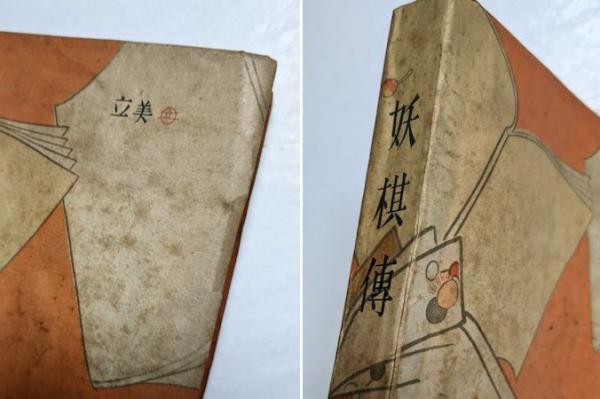 立美
妖棋傳